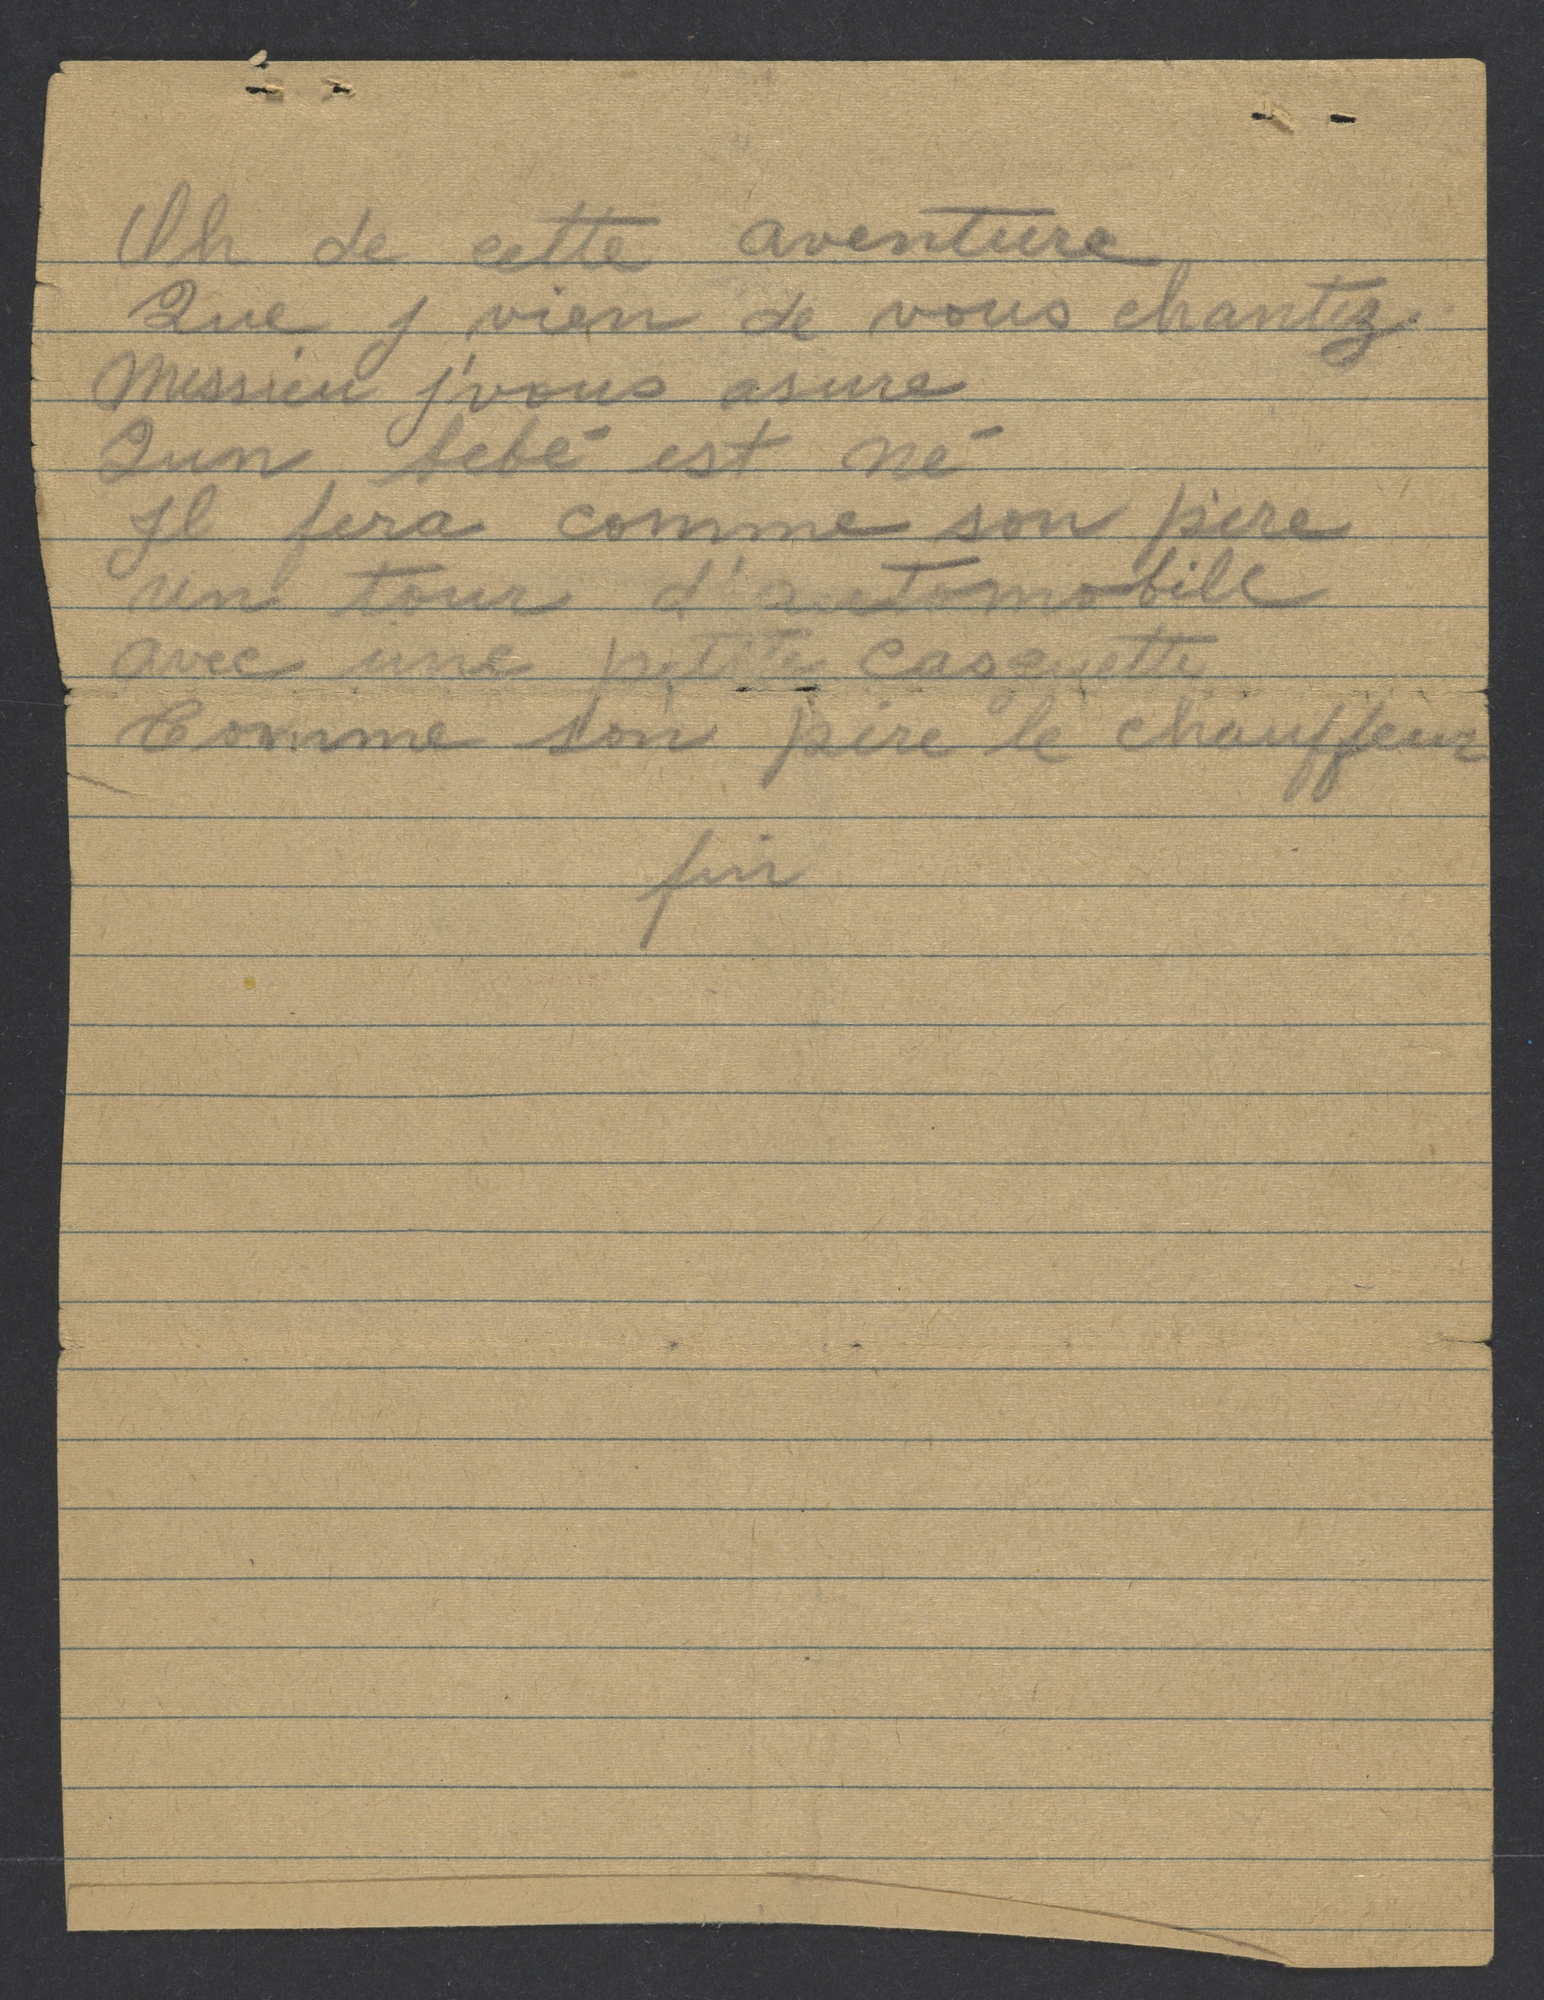 Oh de cette aventure
Que j vien de vous chantez.
Messieu j'vous asure
Qun bébé est né
Il fera comme son pere
un tour d'automobile
avec une petite casquette
Comme son père le chauffeur
fin